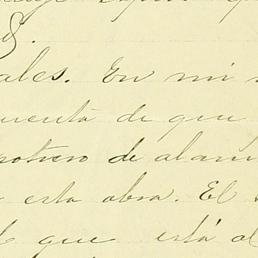 S.
ales. En mi
uenta de que
potrero de alam
esta obra. El
que está al